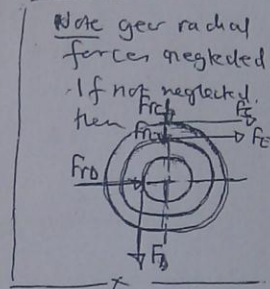 Note gear radial
forces neglected
If not neglected,
then
FrC
FC
FrE
FE
FrD
FD